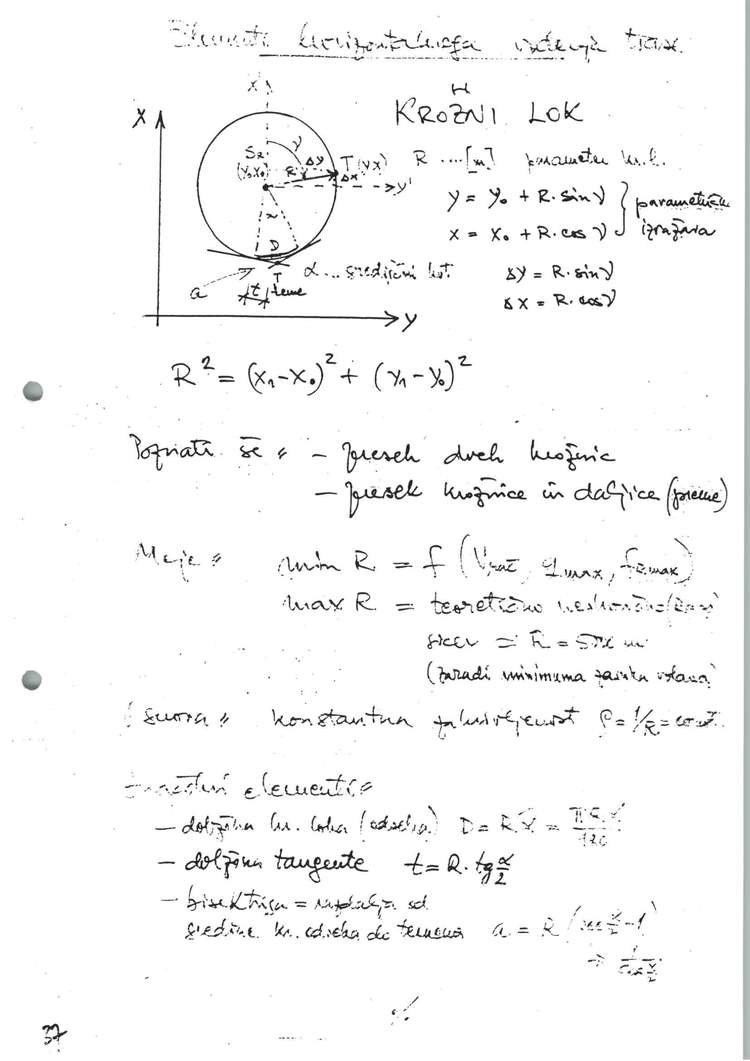 Elementi horizontalnega vodenja trase
KROŽNI LOK
X
X'
Sk
(Y₀X₀)
R
γ
Δy
Δx
T (YX)
Y'
α
D
T
teme
t
a
Y
R ....[m] parameter kr. l.
y = y₀ + R · sin γ
x = x₀ + R · cos γ
parametrično
izražava
α... središčni kot
Δy = R · sin γ
Δx = R · cos γ
R² = (x₁-x₀)² + (y₁-y₀)²
Poznati še: - presek dveh krožnic
- presek krožnice in daljice (preme)
Meje: min R = f (Vrač, qmax, fRmax)
max R = teoretično
sicer = R = m
(zaradi minimuma zasuka volana)
konstantna ukrivljenost ρ = 1/R = const.
elementi:
- dolžina kr. loka (odseka) D = R·α = πRα/180
- dolžina tangente t = R · tg α/2
- bisektrisa = razdalja od
sredine kr. odseka do temena a = R (sec α/2 - 1)
→ 1/cos α/2
%
37